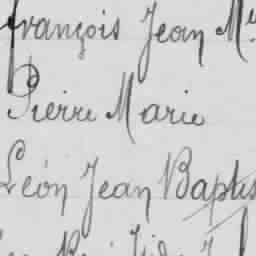 françois Jean M
Pierre Marie
Léon Jean Baptis